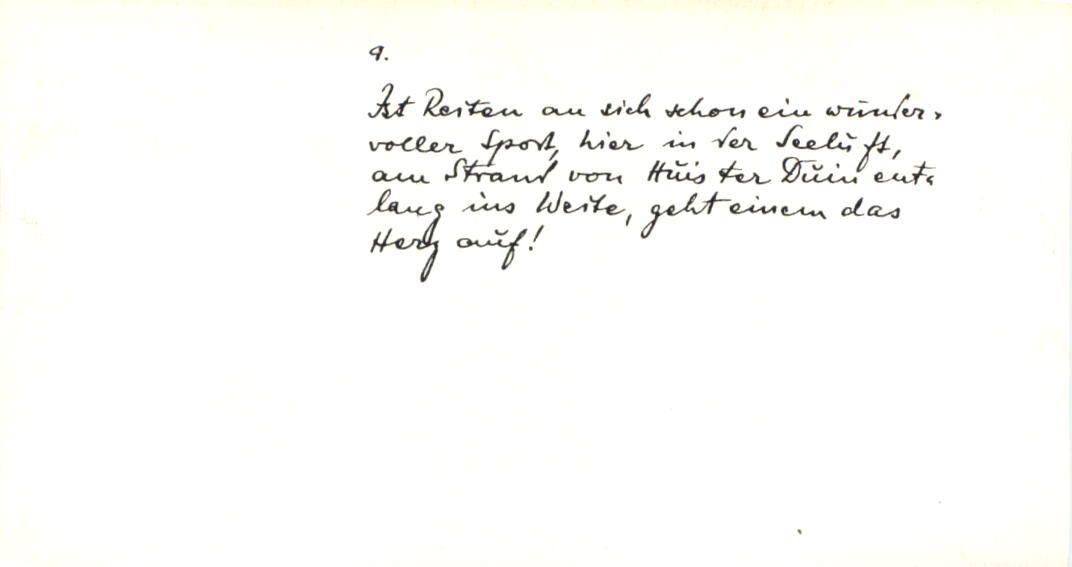 9.
Ist Reiten an sich schon ein wunder-
voller Sport, hier in der Seeluft,
am Strand von Huis ter Duin ent-
lang ins Weite, geht einem das
Herz auf!